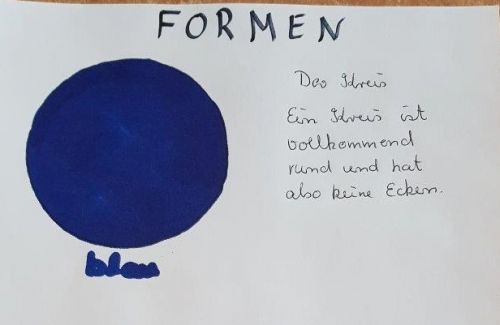 FORMEN
Der Kreis
Ein Kreis ist
vollkommend
rund und hat
also keine Ecken.
blau